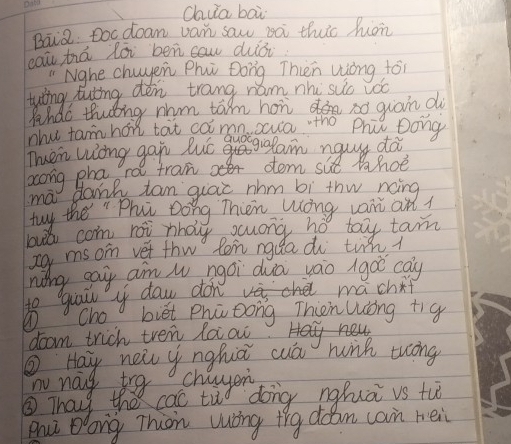 Chữa bài
Bài 2. Đọc đoạn văn sau và thực hiện
câu trả lời bên dưới:
"Nghe chuyện Phù Đổng Thiên Vương tôi
tưởng tượng đến trang nam nhi sức vóc
khác thường nhm tâm hồn giản dị
như tâm hồn tất cả mn xưa thô Phù Đổng
Thiên Vương gặp lúc quốc gia lâm nguy đã
xông pha ra trận đem sức khoẻ
mà đánh tan giặc nhm bị thw nặng
tuy thế "Phù Đổng Thiên Vương vẫn ăn 1
bữa cơm rồi nhảy xuống hồ tây tắm
xg ms ôm vết thw lên ngựa đi tìm 1
rừng cây âm u ngồi dựa vào 1 gốc cây
to giấu ý đau đớn mà ch*t
① Cho biết Phù Đổng Thiên Vương trg
đoạn trích trên là ai.
② Hãy nêu ý nghĩa của hình tượng
nv này trg chuyện
③ Thay thế các từ đồng nghĩa vs từ
Phù Đổng Thiên Vương trg đoạn văn trên